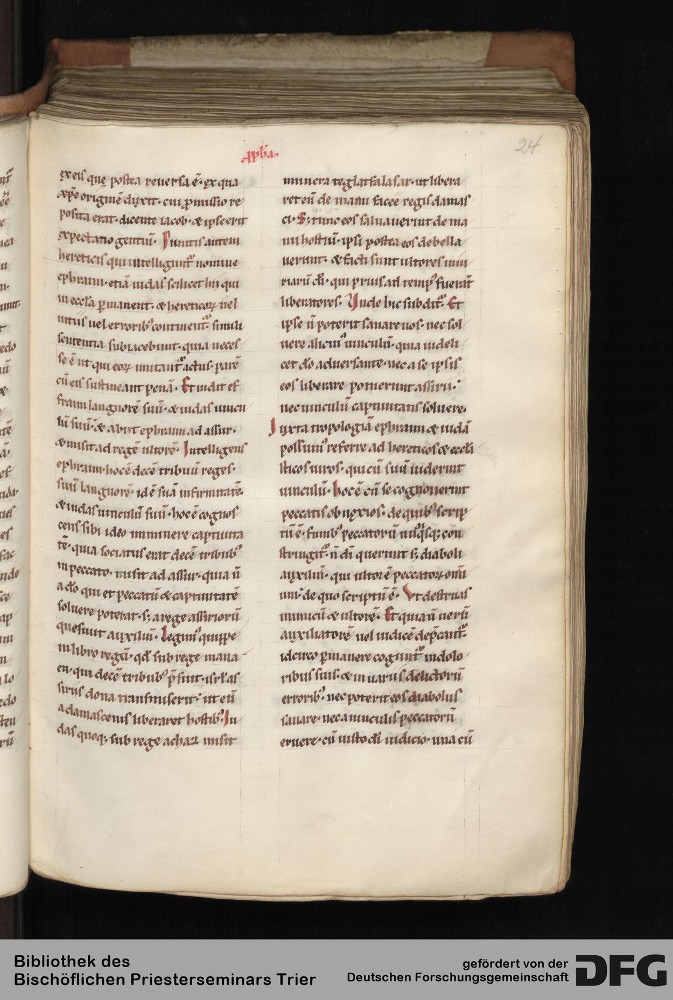 24
ex eis quę postea reuersa ē· ex qua
xp̄c originē duxit· cui p̱missio re
posita erat· dicente iacob· & ipse erit
expectatio gentiū· Iunctis autem
hereticis qui intelligunt᷑ nomine
ephraim· etiā iudas scilicet hii qui
in ecclā p̱manent· & hereticoꝝ uel
uitiis uel errorib; continent᷑· simili
sententia subiacebunt· quia neces
se ē ut qui eoꝝ imitant᷑ actus· parē
cū eis sustineant penā· Et uidit ef
fraim languorē suū· & iudas uincu
lū suū· & abiit ephraim ad assur·
& misit ad regē ultorē· Intelligens
ephraim· hoc ē decē tribuū reges·
suū languorē· id ē suā infirmitatē·
& iudas uinculū suū· hoc ē cognos
cens sibi ideo imminere captiuita
tē· quia sociatus erat decē tribub;
in peccato· misit ad assur· quia n̄
a dō qui et peccatū & captiuitatē
soluere poterat· s; a rege assirioꝝ
quesiuit auxiliū· Legim᷒ quippe
in libro regū· qđ sub rege mana
en· qui decē tribub; p̄fuit· isrl' as
siriis dona transmiserit· ut eū
a damascenis liberaret hostib;· Iu
das quoq; sub rege achaz misit
munera teglatfalasar· ut libera
ret eū de manu facee regis damas
ci· S; tunc eos saluauerint de ma
nu hostiū· ipsi postea eos debella
uerunt· & facti sunt ultores iniu
riarū di· qui prius ad temp᷒ fuerunt
liberatores· Unde hic subdit᷑· Et
ipse n̄ poterit sanare uos· nec sol
uere alicui᷒ uinculū· quia uideli
cet dō aduersante· nec a se ipsis
eos liberare potuerunt assirii·
nec uinculū captiuitatis soluere·
Iuxta tropologiā ephraim & iudā
possum᷒ referre ad hereticos & ecclā
sticos uiros· qui cū suū uiderint
uinculū· hoc ē cū se cognouerint
peccatis obnoxios· de quib; scrip
tū ē· funib; peccatorū unusq;sq; con
stringit᷑· n̄ dī querunt s; diaboli
auxiliū· qui ultorē peccatoꝝ omī
um· de quo scriptū ē· Ut destruas
inimicū & ultorē· Et quia n̄ uerū
auxiliatorē uel iudicē dep̄cant᷑·
idcirco p̱manere cogunt᷑ in dolo
ribus suis· & in uariis delictorū
errorib;· nec poterit eos diabolus
sanare· nec a uinculis peccatorū
eruere· cū iusto dī iudicio· una cū
Bibliothek des
Bischöflichen Priesterseminars Trier
gefördert von der
Deutschen Forschungsgemeinschaft
DFG